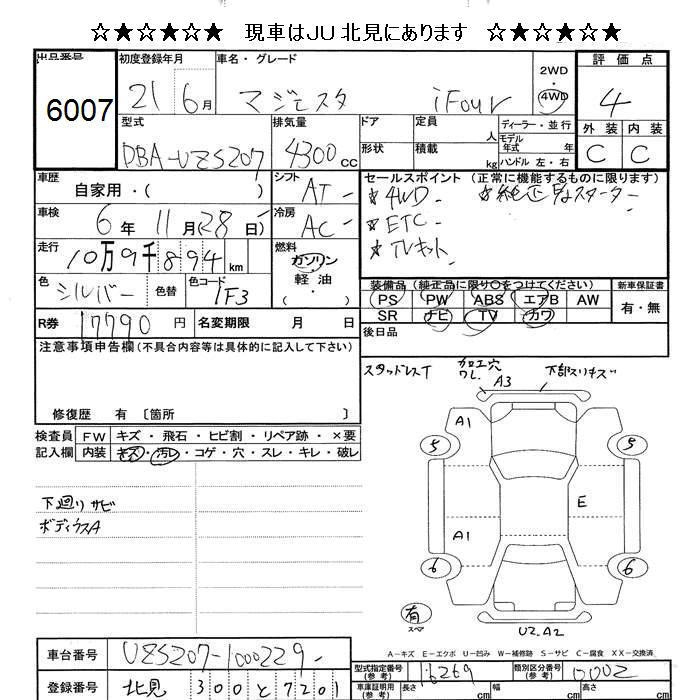 ☆★☆★☆★ 現車はJU北見にあります ☆★☆★☆★
出品番号 初度登録年月 車名・グレード 2WD・4WD 評価点
6007 21 6月 マジェスタ iFour 4
型式 排気量 ドア 定員 人 ディーラー・並行 外装 内装
DBA-UZS207 4300cc 形状 積載 kg モデル年式 年 ハンドル 左・右 C C
車歴 自家用・( ) シフト AT
セールスポイント(正常に機能するものに限ります)
☆4WD ☆純正
☆ETC
☆TVキット
車検 6年 11月 28日 冷房 AC
走行 10万9千894km 燃料 ガソリン・軽油・
色 シルバー 色替 色コード 1F3
装備品(純正品に限り○をつけてください) 新車保証書
PS PW ABS エアB AW 有・無
SR ナビ TV カワ
R券 17790円 名変期限 月 日
後日品
注意事項申告欄(不具合内容等は具体的に記入して下さい)
修復歴 有 〔箇所 〕
スタッドレスT
加工穴 ワレ
下部スリキズ
A3
検査員記入欄 FW キズ・飛石・ヒビ割・リペア跡・×要
内装 キズ・汚レ・コゲ・穴・スレ・キレ・破レ
下廻りサビ
ボディウスA
A1
5 5
E
A1
6 6
有 スペア
U2.A2
A-キズ E-エクボ U-凹み W-補修跡 S-サビ C-腐食 XX-交換済
車台番号 UZS207-1000229
型式指定番号(参考) 16269 類別区分番号(参考) 0002
登録番号 北見 300 と 7201
車庫証明用(参考) 長さ cm 幅 cm 高さ cm